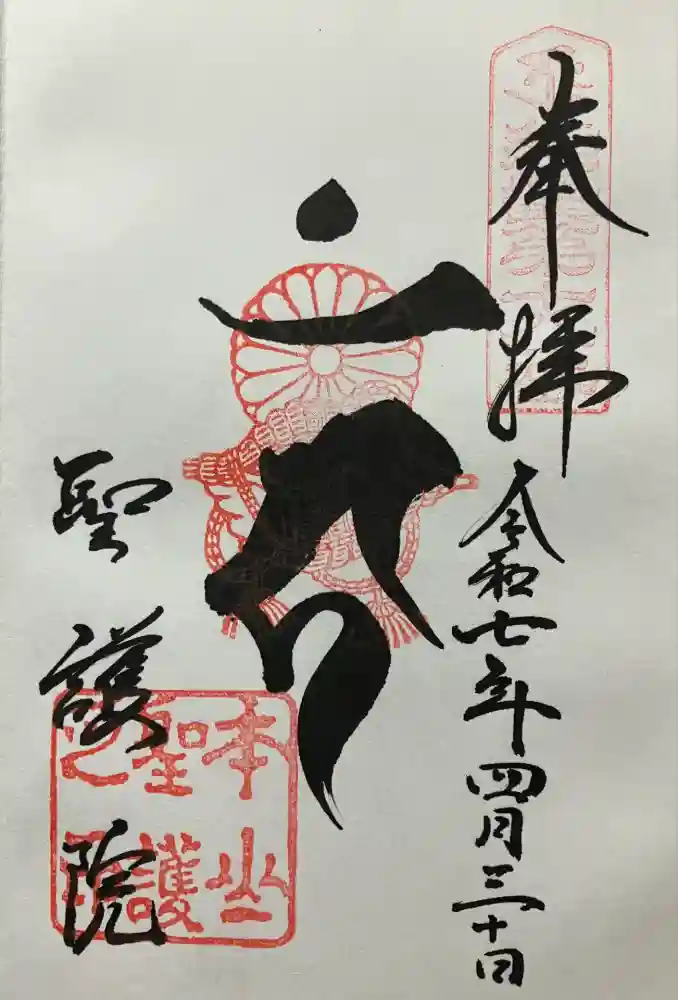 奉拝
令和七年四月三十日
聖護院
本山
聖護